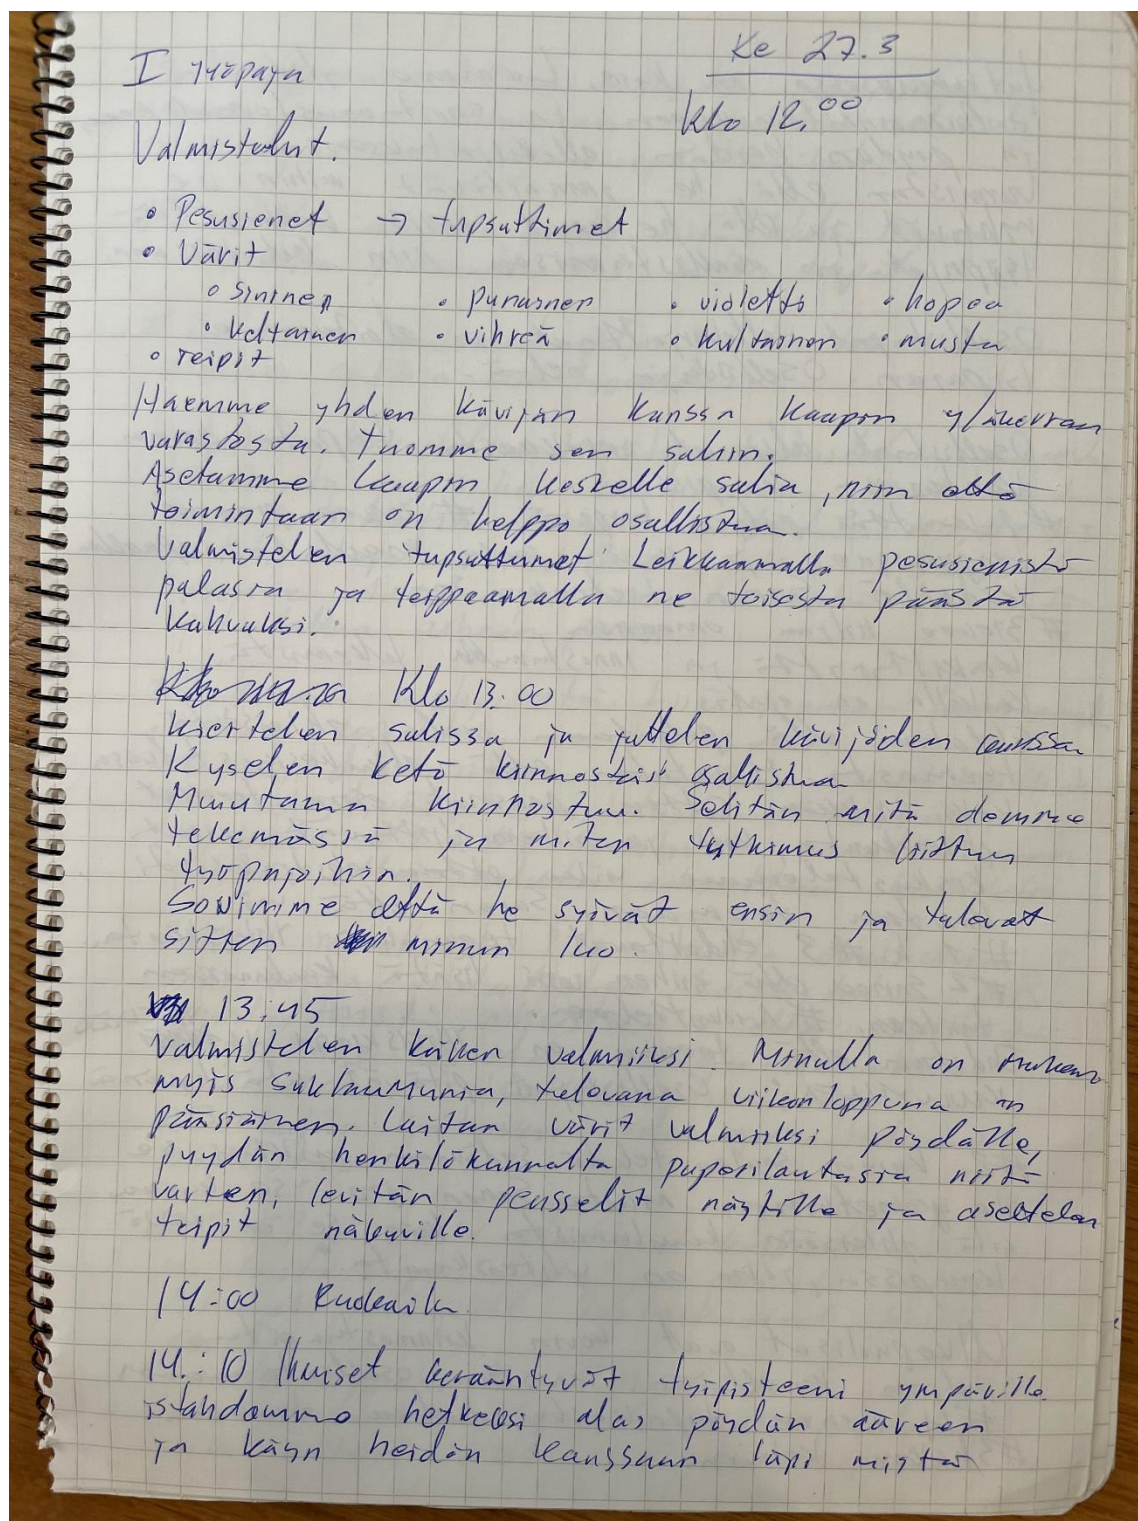 I Työpaja
Ke 27.3
Klo 12.00
Valmistelut.
• Pesusienet → tupsuttimet
• Värit
• sininen • punainen • violetti • hopea
• keltainen • vihreä • kultainen • musta
• teipit
Haemme yhden kävijän kanssa kaapin yläkerran
varastosta. Tuomme sen saliin.
Asetamme kaapin keskelle salia, niin että
toimintaan on helppo osallistua.
Valmistelen tupsuttimet leikkaamalla pesusienistä
palasia ja teippaamalla ne toisesta päästä
kahvaksi.
Klo 13.00
Kiertelen salissa ja juttelen kävijöiden kanssa.
Kyselen ketä kiinnostaisi osallistua
Muutama kiinnostuu. Selitän mitä olemme
tekemässä ja miten tutkimus liittyy
työpajoihin.
Sovimme että he syövät ensin ja tulevat
sitten minun luo.
13.45
Valmistelen kaiken valmiiksi. Minulla on mukana
myös suklaamunia, tulevana viikonloppuna on
pääsiäinen. Laitan värit valmiiksi pöydälle,
pyydän henkilökunnalta paperilautasia niitä
varten, levitän pensselit näytille ja asettelen
teipit näkyville.
14:00 Ruokailu
14.:10 Ihmiset kerääntyvät työpisteeni ympärille.
istahdamme hetkeksi alas pöydän ääreen
ja käyn heidän kanssaan läpi mistä